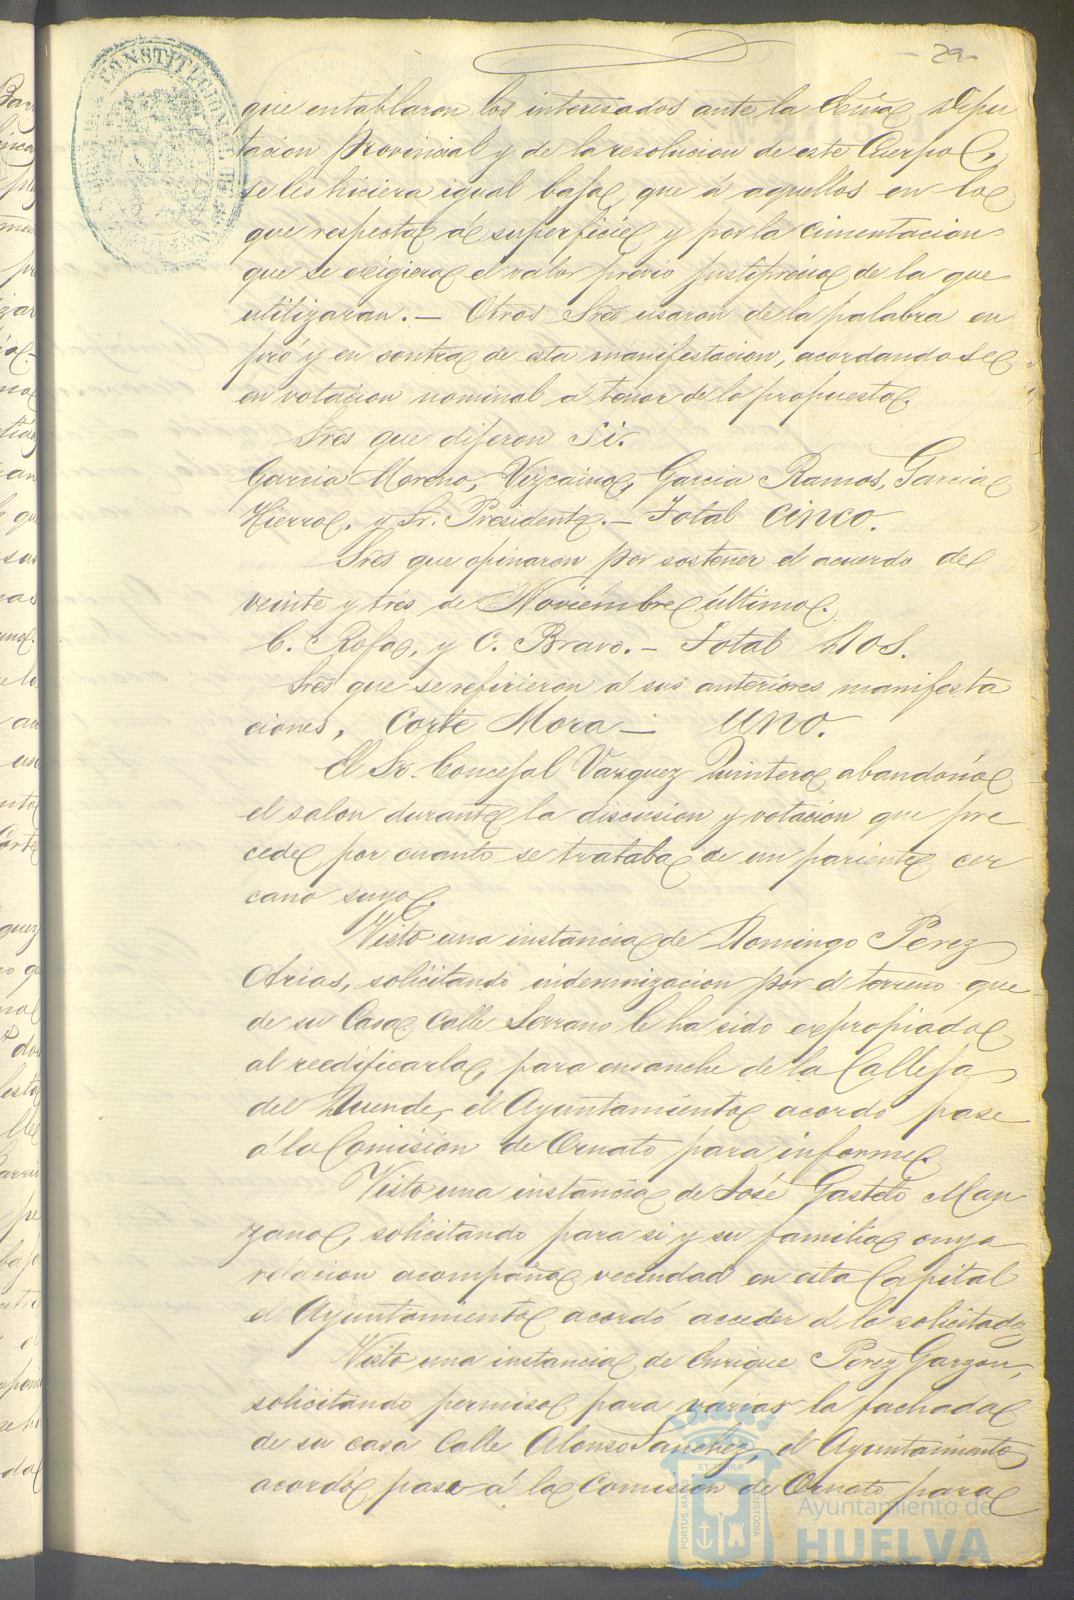 -29-
que entablaron los interesados ante la Excma Dipu
tacion Provincial y de la resolucion de este Cuerpo,
se les hiciera igual baja que á aquellos en lo
que respecta á superficie y por la cimentacion
que se exigiera el valor previo justiprecio de la que
utilizaran. — Otros Sres usaron de la palabra en
pró y en contra de esta manifestacion, acordandose
en votacion nominal á tenor de lo propuesto.
Sres que dijeron Si.
Garcia Moreno, Vizcaino, Garcia Ramos, Garcia
Hierro, y Sr. Presidente. — Total Cinco.
Sres que opinaron por sostener el acuerdo de
veinte y tres de Noviembre último.
C. Rofa, y C. Bravo. — Total Dos.
Sres que se refirieron á sus anteriores manifesta
ciones, Corte Mora — Uno.
El Sr. Concejal Vazquez Quintero abandonó
el salon durante la discusion y votacion que pre
cede por cuanto se trataba de un pariente cer
cano suyo.
Visto una instancia de Domingo Perez
Arias, solicitando indemnizacion por el terreno que
de su Casa Calle Serrano le ha sido expropiado
al reedificarla, para ensanche de la Calleja
del Duende, el Ayuntamiento acordo pase
á la Comision de Ornato para informe.
Visto una instancia de José Gasteto Man
zano, solicitando para si y su familia cuya
relacion acompaña vecindad en esta Capital
el Ayuntamiento acordó acceder á lo solicitado
Visto una instancia de Enrique Perez Garzon,
solicitando permiso para variar la fachada
de su casa Calle Alonso Sanchez, el Ayuntamiento
acordó pase á la Comision de Ornato para
Ayuntamiento de
HUELVA